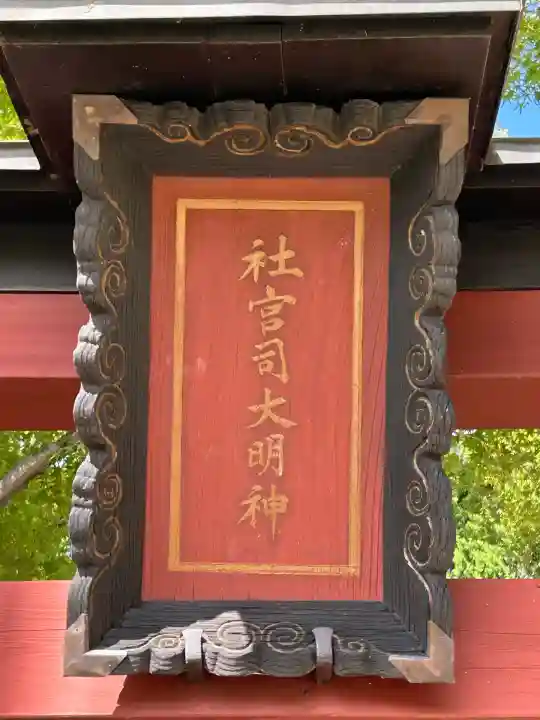 社宮司大明神